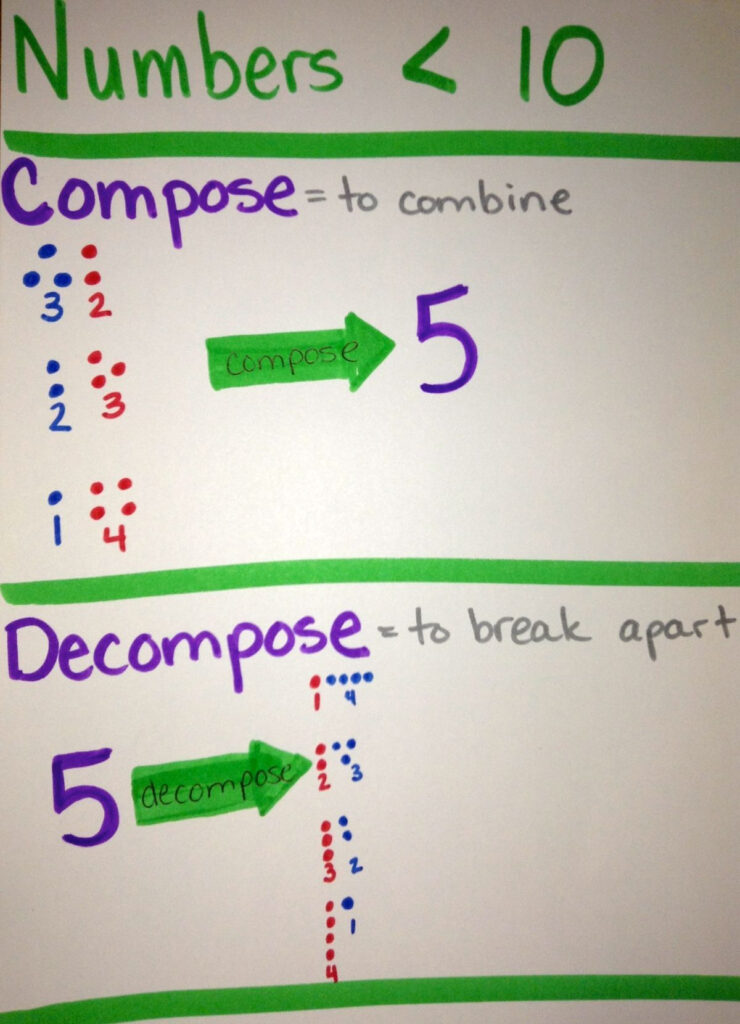 Numbers < 10
Compose = to combine
3 2
compose 5
2 3
1 4
Decompose = to break apart
1 4
5 decompose
2 3
3 2
4 1